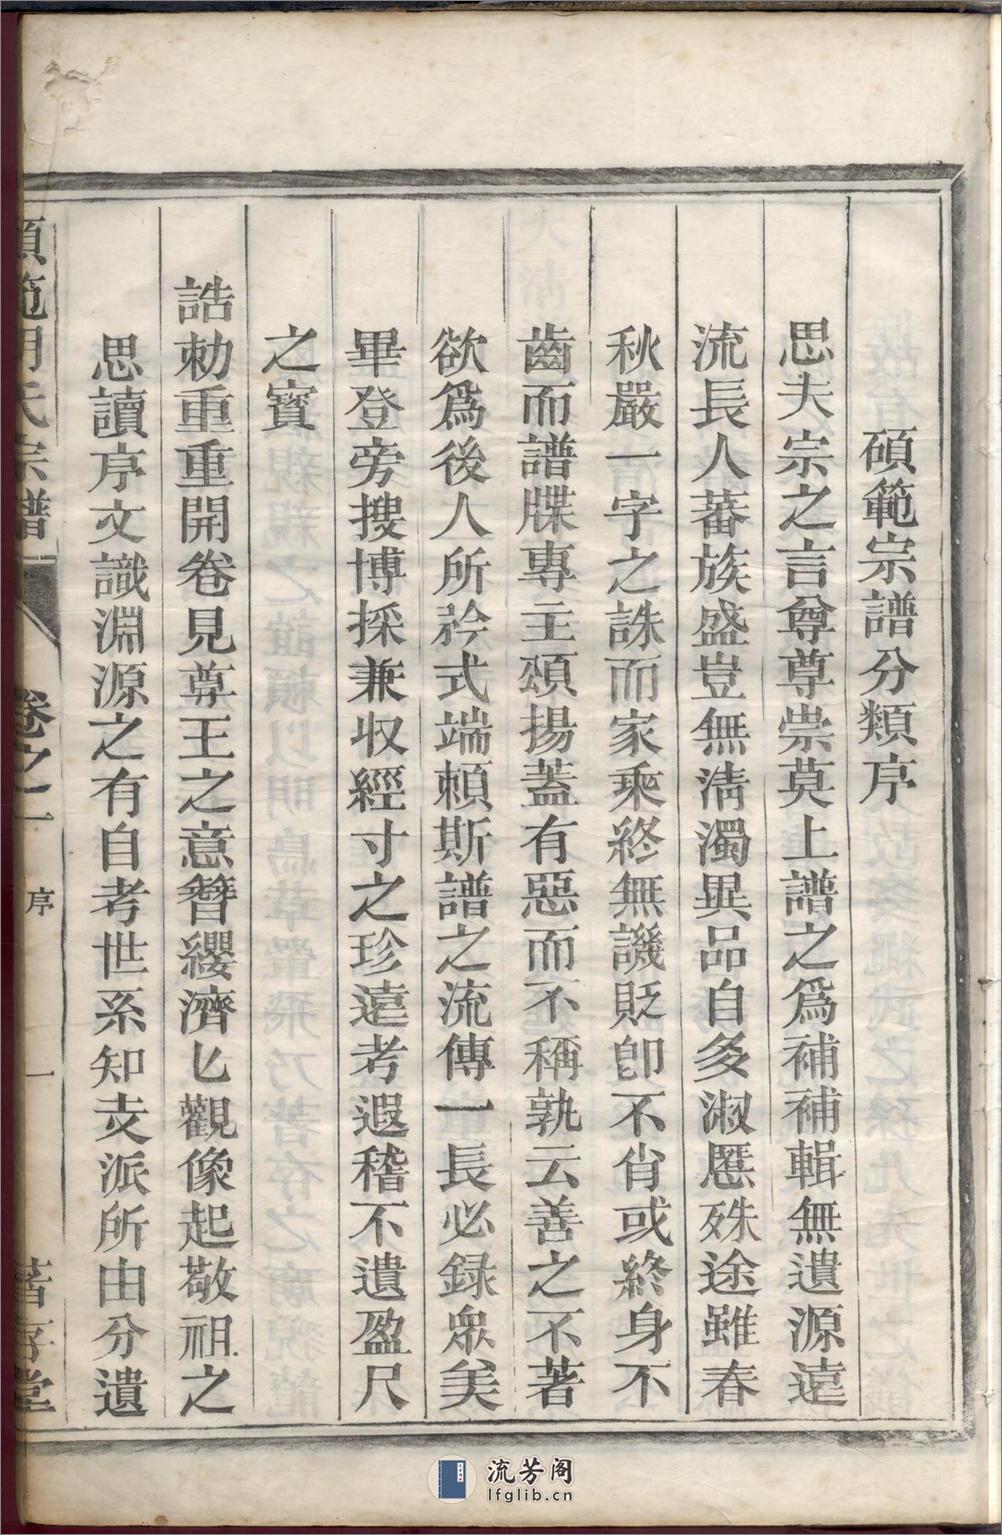 碩範宗譜分類序
思夫宗之言尊尊崇莫上譜之爲補補輯無遺源遠
流長人蕃族盛豈無淸濁異品自多淑慝殊途雖春
秋嚴一字之誅而家乘終無譏貶卽不肖或終身不
齒而譜牒專主頌揚蓋有惡而不稱孰云善之不著
欲爲後人所矜式端賴斯譜之流傳一長必録眾美
畢登旁搜博採兼收經寸之珍遠考遐稽不遺盈尺
之寶
誥勅重重開卷見尊王之意簪纓濟匕觀像起敬祖之
思讀序文識淵源之有自考世系知支派所由分遺
碩範胡氏宗譜 卷之一 序 一 著存堂
流芳阁
lfglib.cn